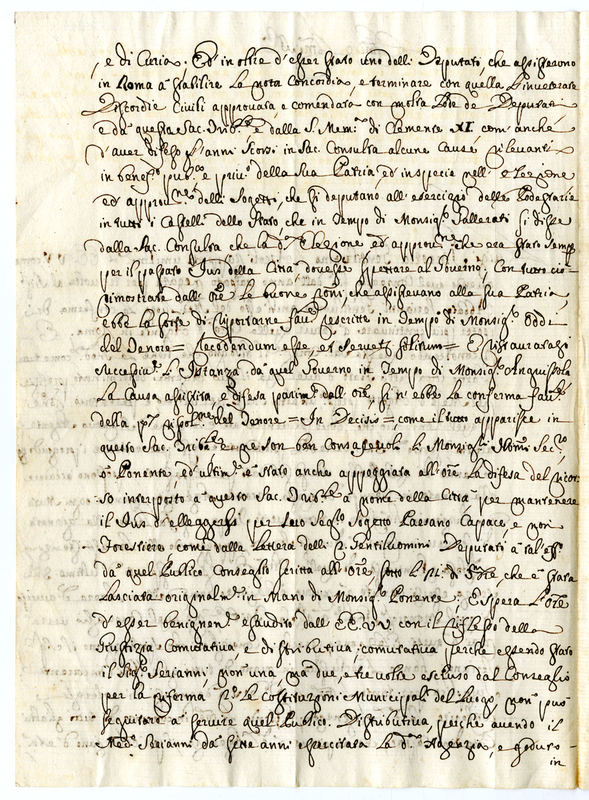 e di Curia. Et in oltre d'esser stato uno delli Deputati, che assisterono
in Roma a stabilire la nota Concordia, e terminare con quella l'inveterate
Discordie Civili approvata e comendata con molta lode de Deputati
e da questa Sac. e dalla S. Mem. di Clemente XI. com' anche
d'aver difeso l'anni scorsi in Sac. Consulta alcune Cause rilevanti
in benef.o pub.o e priv.o della Sua Patria, ed in specie nell' elezione
ed approv.ne delli Sogetti, che si deputano all' esercizio delle Podestarie
in tutti i Castelli dello Stato che in tempo di Monsig.r Pallerati si disse
dalla Sac. Consulta che la d.a Elezione ed approv.ne che era stato semp.
per il passato Jus della Città, dovesse spettare al Governo; Con tutto ciò
dimostrate dall' Ore le buone che assistevano alla sua Patria
ebbe la sorte di riportarne rescritto in tempo di Monsig.r Oddi
del Tenore = Recedendum esse, et servetur solitum = E ristauratasi
l'Istanza da quel Governo in tempo di Monsig.r Anguissola
la Causa assistita, e difesa dall' ore, si n' ebbe la conferma
della del Tenore = In Decisis = come il tutto apparisce in
questo Sac. e ne son ben Consapevoli li Monsig.ri
Ponente, ed ultim.e è stato anche appoggiata all' Ore la difesa del ricor
so interposto a questo Sac. a nome della Città per mantenere
il Jus d'elleggersi per loro Seg.o Sogetto Paesano Capace, e non
Forestiero come dalla lettera delli Gentiluomini Deputati a tal'
da quel Publico Conseglio scritta all' Ore, sotto li di che è stata
lasciata originalm.e in Mano di Monsig.r Ponente; E Spera l'Ore
d'esser benignam.e esaudito dall' EE. VV. con il riflesso della
Giustizia Comutativa, e distributiva: comutativa perche essendo stato
il Sig.r Serianni, non una, ma due, e tre volte escluso dal Conseglio
per la riforma le Costituzioni Municipali del Luogo, non può
seguitare a servire quel Publico. Distributiva, perche avendo il
Med.o Serianni da sette anni esercitata la d.a Agenzia, e goduto
in